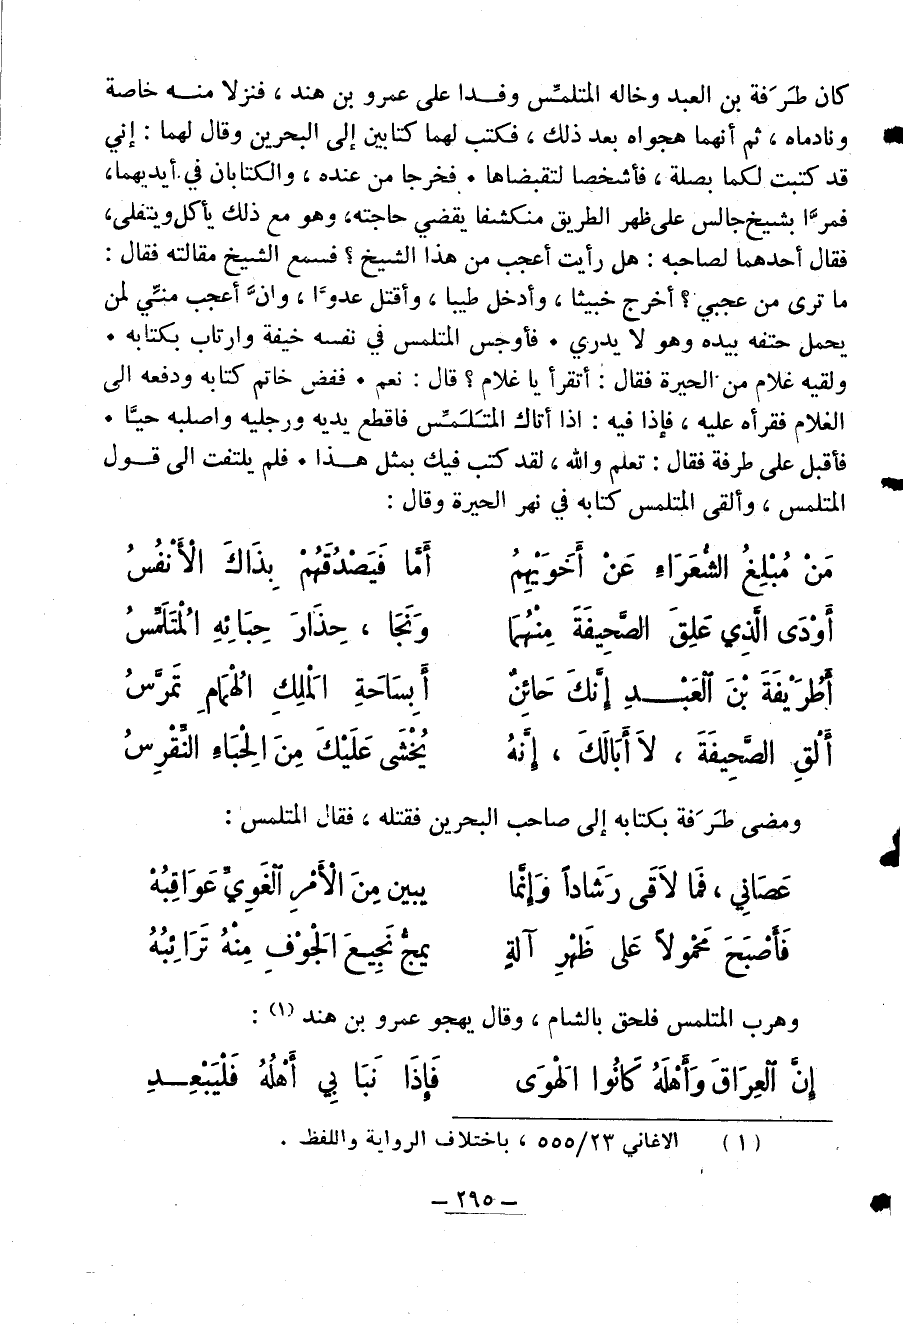 كان طَرَفة بن العبد وخاله المتلمِّس وفـدا على عمرو بن هند ، فنزلا منـه خاصة
ونادماه ، ثم أنهما هجواه بعد ذلك ، فكتب لهما كتابين إلى البحرين وقال لهما : إني
قد كتبت لكما بصلة ، فأشخصا لتقبضاها . فخرجا من عنده ، والكتابان في أيديهما،
فمرَّا بشيخ جالس على ظهر الطريق منكشفا يقضي حاجته، وهو مع ذلك يأكل ويتفلى،
فقال أحدهما لصاحبه : هل رأيت أعجب من هذا الشيخ ؟ فسمع الشيخ مقالته فقال :
ما ترى من عجبي ؟ أخرج خبيثا ، وأدخل طيبا ، وأقتل عدوًّا ، وانَّ أعجب منِّي لمن
يحمل حتفه بيده وهو لا يدري . فأوجس المتلمس في نفسه خيفة وارتاب بكتابه .
ولقيه غلام من الحيرة فقال : أتقرأ يا غلام ؟ قال : نعم . ففض خاتم كتابه ودفعه الى
الغلام فقرأه عليه ، فإذا فيه : اذا أتاك المتـَلـَمِّس فاقطع يديه ورجليه واصلبه حيًّا .
فأقبل على طرفة فقال : تعلم والله ، لقد كتب فيك بمثل هـذا . فلم يلتفت الى قـول
المتلمس ، وألقى المتلمس كتابه في نهر الحيرة وقال :
مَنْ مُبْلِغُ الشُّعَرَاءِ عَنْ أَخَوَيْهِمُ أَمَّا فَيَصْدُقَهُمْ بِذَاكَ الْأَنْفُسُ
أَوْدَى الَّذِي عَلِقَ الصَّحِيفَةَ مِنْهُمَا وَنَجَا ، حِذَارَ حِبَائِهِ الْمُتَلَمِّسُ
أَطُرَيْفَةَ بْنَ الْعَبْـدِ إِنَّكَ حَائِنٌ أَبِسَاحَةِ الْمَلِكِ الْهُمَامِ تَمَرَّسُ
أَلْقِ الصَّحِيفَةَ ، لاَ أَبَالَكَ ، إِنَّهُ يُخْشَى عَلَيْكَ مِنَ الْحِبَاءِ النِّقْرِسُ
ومضى طَرَفة بكتابه إلى صاحب البحرين فقتله ، فقال المتلمس :
عَصَانِي ، فَمَا لاَقَى رَشَاداً وَإِنَّمَا يبين مِنَ الْأَمْرِ الْغَوِيِّ عَوَاقِبُهْ
فَأَصْبَحَ مَحْمُولاً عَلَى ظَهْرِ آلَةٍ يمجُّ نَجِيعَ الْجَوْفِ مِنْهُ تَرَائِبُهُ
وهرب المتلمس فلحق بالشام ، وقال يهجو عمرو بن هند (١) :
إِنَّ الْعِرَاقَ وَأَهْلَهُ كَانُوا الْهَوَى فَإِذَا نَبَا بِي أَهْلُهُ فَلْيَبْعِـدِ
(١) الاغاني ٢٣/٥٥٥ ، باختلاف الرواية واللفظ .
– ٢٩٥ –